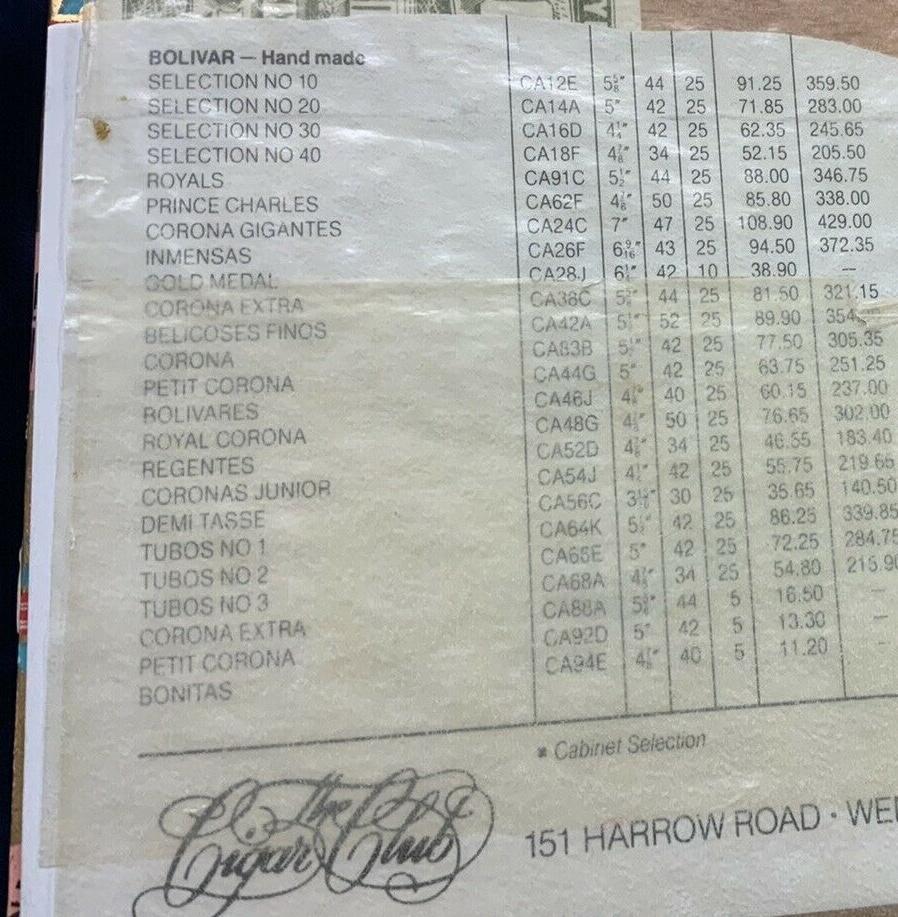 BOLIVAR — Hand made
SELECTION NO 10 CA12E 5⅝" 44 25 91.25 359.50
SELECTION NO 20 CA14A 5" 42 25 71.85 283.00
SELECTION NO 30 CA16D 4¼" 42 25 62.35 245.65
SELECTION NO 40 CA18F 4⅞" 34 25 52.15 205.50
ROYALS CA91C 5½" 44 25 88.00 346.75
PRINCE CHARLES CA62F 4⅞" 50 25 85.80 338.00
CORONA GIGANTES CA24C 7" 47 25 108.90 429.00
INMENSAS CA26F 6 9/16" 43 25 94.50 372.35
GOLD MEDAL CA28J 42 10 38.90 —
CORONA EXTRA CA38C 5⅝" 44 25 81.50 321.15
BELICOSES FINOS CA42A 5½" 52 25 89.90
CORONA CA83B 5½" 42 25 77.50 305.35
PETIT CORONA CA44G 5" 42 25 63.75 251.25
BOLIVARES CA46J 40 25 60.15 237.00
ROYAL CORONA CA48G 50 25 76.65 302.00
REGENTES CA52D 4⅞" 34 25 46.55 183.40
CORONAS JUNIOR CA54J 42 25 55.75 219.65
DEMI TASSE CA56C 30 25 35.65 140.50
TUBOS NO 1 CA64K 5½" 42 25 86.25 339.85
TUBOS NO 2 CA65E 5" 42 25 72.25 284.75
TUBOS NO 3 CA68A 4⅞" 34 25 54.80 215.90
CORONA EXTRA CA88A 5⅝" 44 5 16.50 —
PETIT CORONA CA92D 5" 42 5 13.30 —
BONITAS CA94E 40 5 11.20 —
* Cabinet Selection
The Cigar Club
151 HARROW ROAD ·